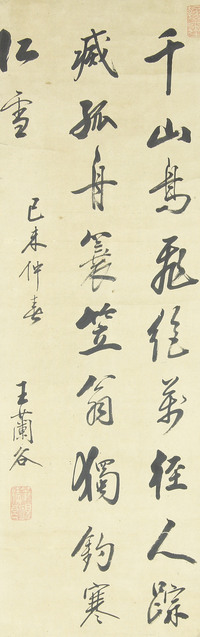 千山鳥飛絕萬徑人踪
滅孤舟蓑笠翁獨釣寒
江雪
己未仲春
王蘭谷